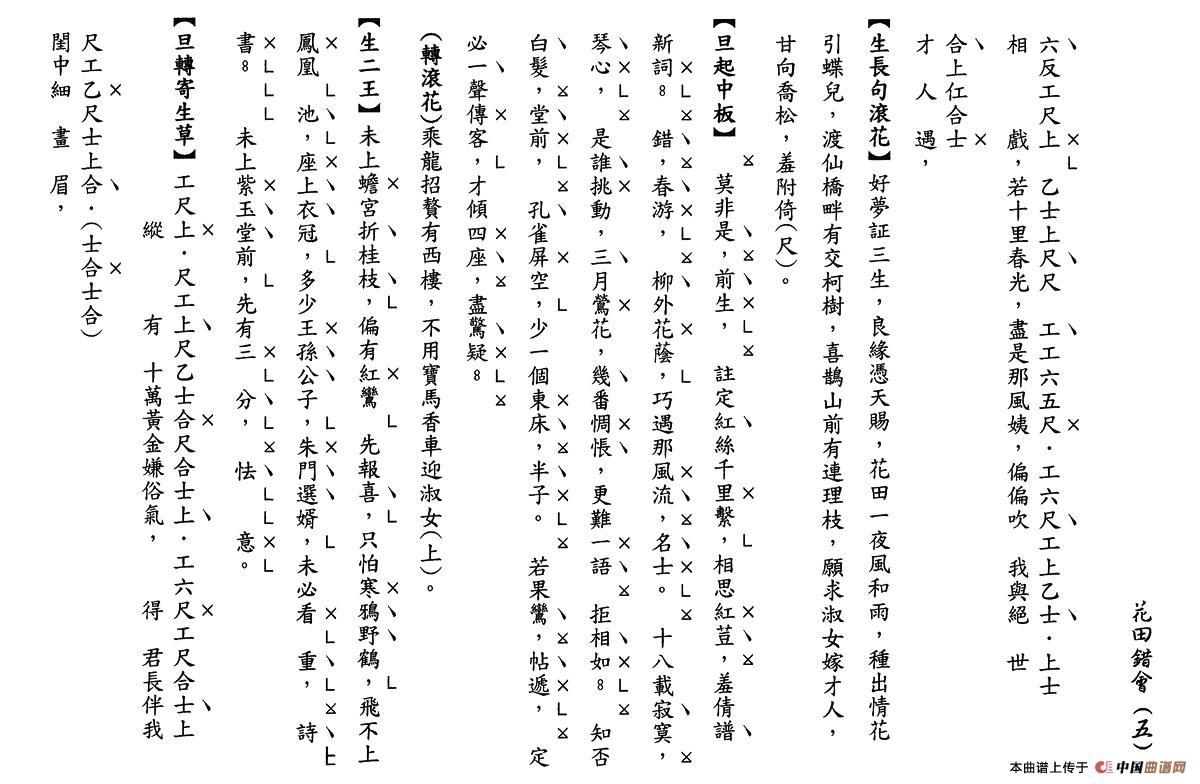 花田錯會（五）
六反工尺上　乙士上尺尺　工工六五尺．工六尺工上乙士．上士
相戲，若十里春光，盡是那風姨，偏偏吹我與絕世
合上仜合士
才人遇，
【生長句滾花】好夢証三生，良緣憑天賜，花田一夜風和雨，種出情花
引蝶兒，渡仙橋畔有交柯樹，喜鵲山前有連理枝，願求淑女嫁才人，
甘向喬松，羞附倚（尺）。
【旦起中板】莫非是，前生，註定紅絲千里繫，相思紅荳，羞倩譜
新詞。錯，春游，柳外花蔭，巧遇那風流，名士。十八載寂寞，
琴心，是誰挑動，三月鶯花，幾番惆悵，更難一語拒相如。知否
白髮，堂前，孔雀屏空，少一個東床，半子。若果鸞，帖遞，定
必一聲傳客，才傾四座，盡驚疑。
（轉滾花）乘龍招贅有西樓，不用寶馬香車迎淑女（上）。
【生二王】未上蟾宮折桂枝，偏有紅鸞先報喜，只怕寒鴉野鶴，飛不上
鳳凰池，座上衣冠，多少王孫公子，朱門選婿，未必看重，詩
書。未上紫玉堂前，先有三分，怯意。
【旦轉寄生草】工尺上．尺工上尺乙士合尺合士上．工六尺工尺合士上
縱有十萬黃金嫌俗氣，得君長伴我
尺工乙尺士上合．（士合士合）
閨中細畫眉，
本曲谱上传于 中国曲谱网